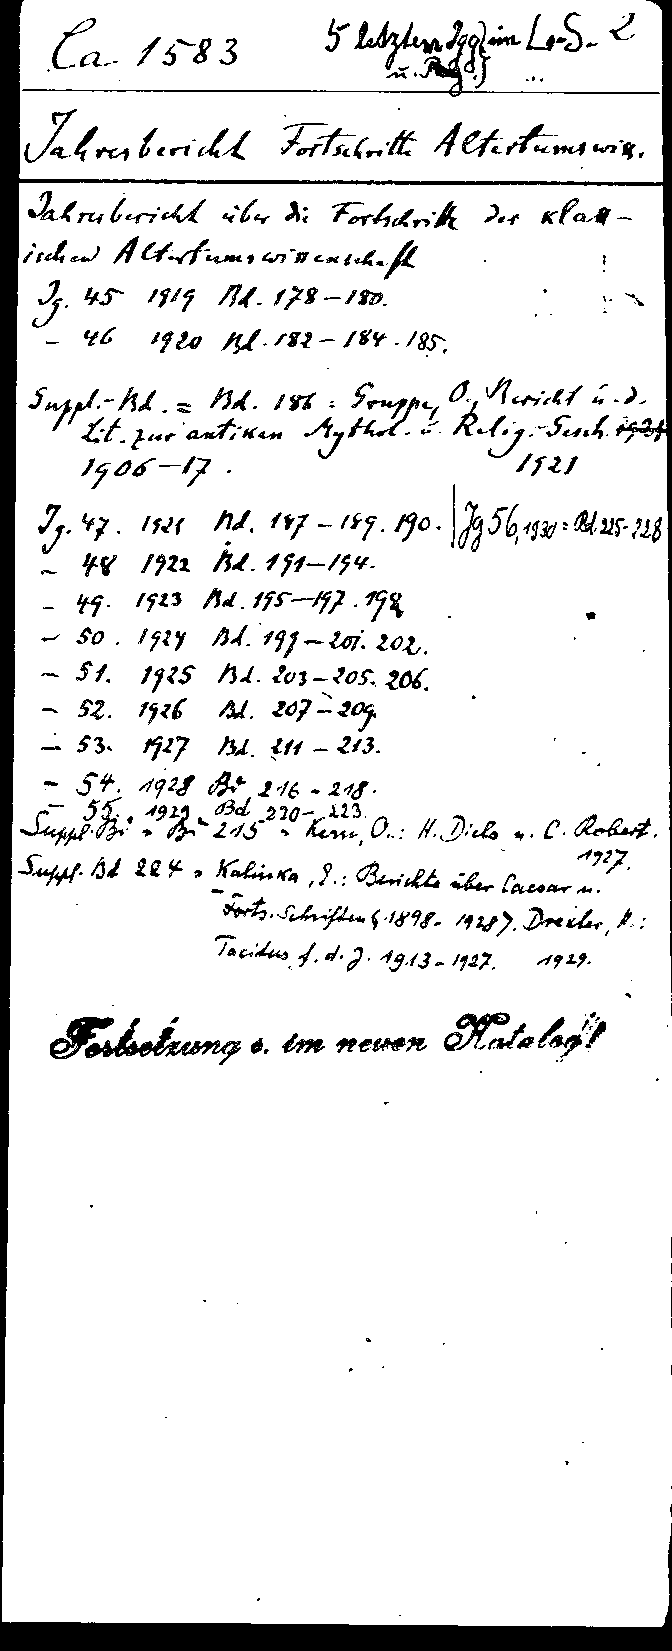 Ca 1583
5 letzten Jgg. im L.-S. 2
u. Reg.
Jahresbericht Fortschritte Altertumswiss.
Jahresbericht über die Fortschritte der klass-
ischen Altertumswissenschaft
Jg. 45 1919 Bd. 178-180.
- 46 1920 Bd. 182-184. 185.
Suppl.-Bd. = Bd. 186 = Gruppe, O., Bericht ü. d.
Lit. zur antiken Mythol. u. Relig. Gesch.
1906-17. 1921
Jg. 47. 1921 Bd. 187-189. 190. | Jg 56, 1930 = Bd. 225-228
- 48 1922 Bd. 191-194.
- 49. 1923 Bd. 195-197. 198
- 50. 1924 Bd. 199-201. 202.
- 51. 1925 Bd. 203-205. 206.
- 52. 1926 Bd. 207-209.
- 53. 1927 Bd. 211-213.
- 54. 1928 Bd 216-218.
- 55. 1929 Bd 220-223.
Suppl. Bd = Bd 215 = Kern, O.: H. Diels u. C. Robert.
1927.
Suppl. Bd 224 = Kalinka, E.: Berichte über Caesar u.
Forts. Schriften (1898-1928). Drexler, H.:
Tacidus f. d. J. 1913-1927. 1929.
Fortsetzung s. im neuen Katalog!